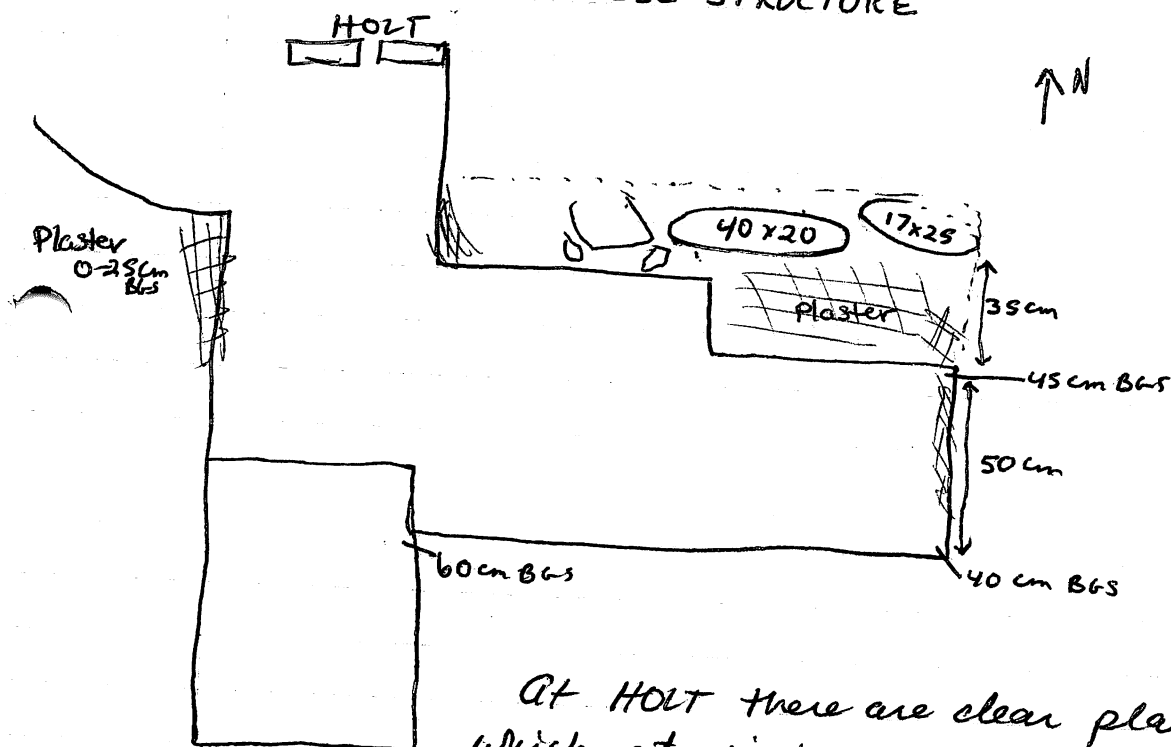 STRUCTURE
HOLT
N
Plaster
0-25cm
BGS
40 x 20
17x25
plaster
35cm
45cm BGS
50cm
60cm BGS
40 cm BGS
At HOLT there are clear pla